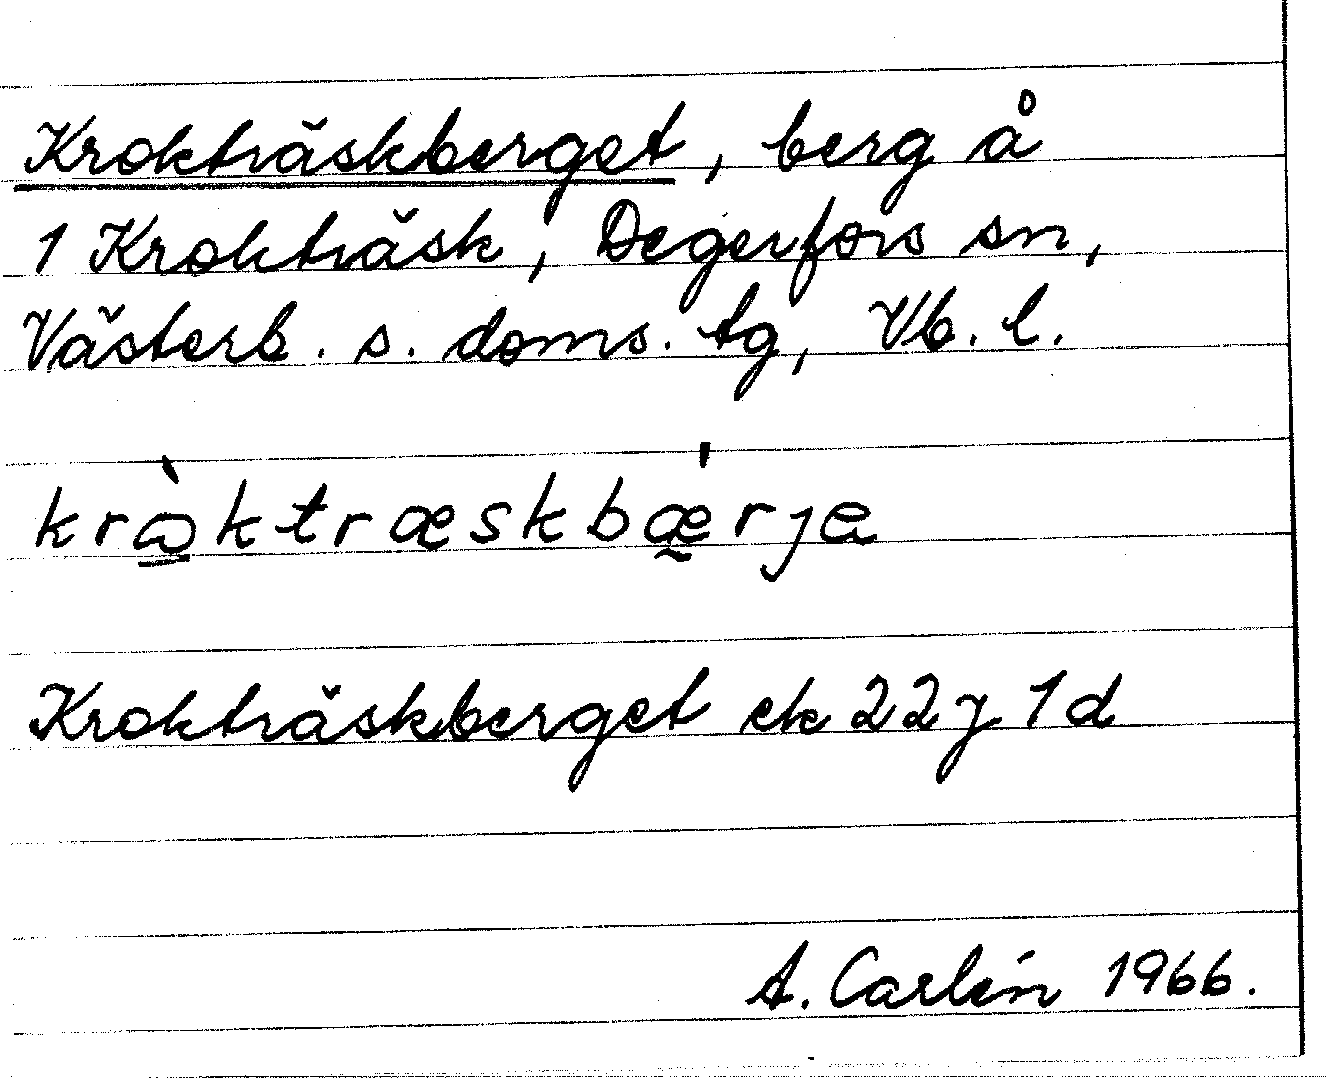 Krokträskberget, berg å
1 Krokträsk, Degerfors sn,
Västerb. s. doms. tg, Vb. l.
krὼ̲ktræskbǽ̰rjə
Krokträskberget ek 22 J 1 d
A. Carlén 1966.